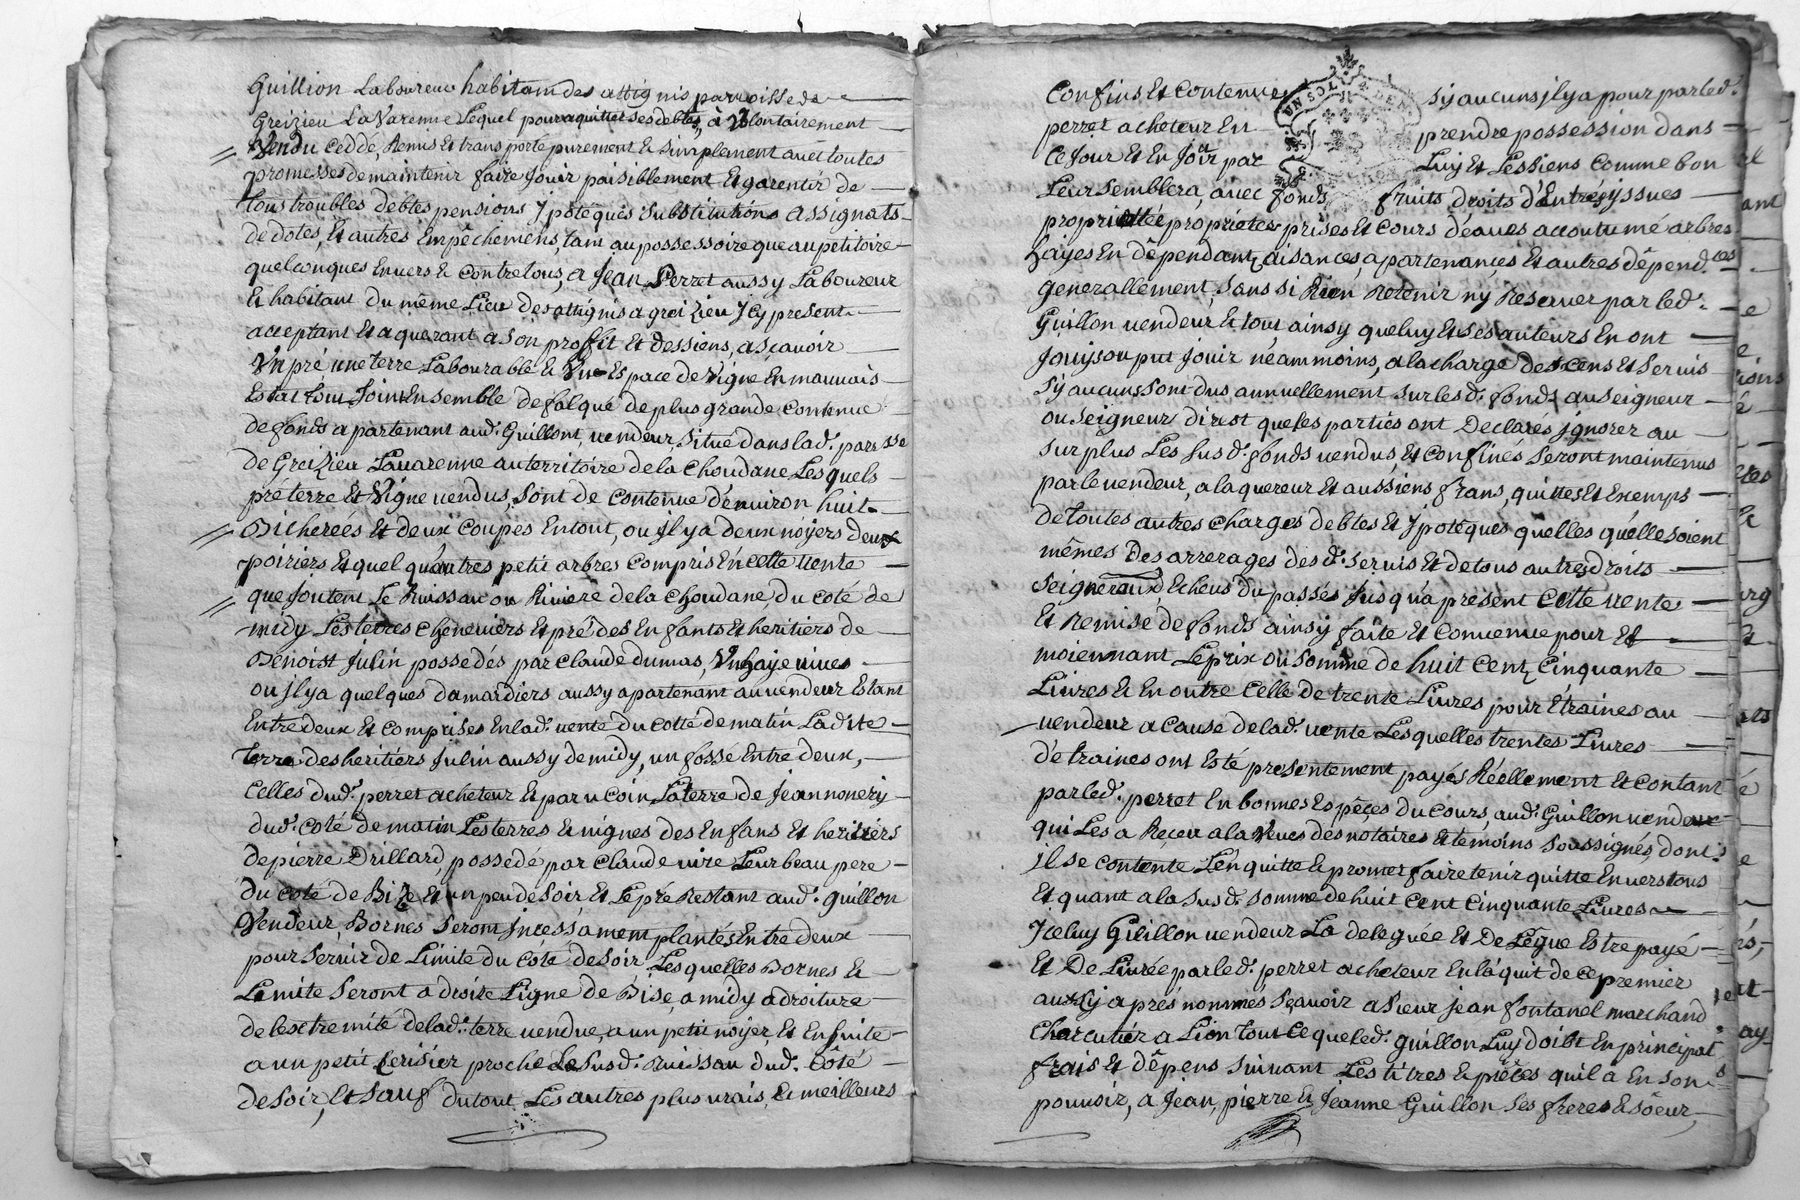 Guillion Laboureur habitam des attignis parroisse de
Greizieu La Varenne Lequel pour aquitter ses debtes, à Volontairement
Vendu Cedde, Remis Et transporté purement & simplement avec toutes
promesses de maintenir faire Jouir paisiblement Et garentir de
tous troubles debtes pensions Jpoteques substitutions assignats
de dotes, Et autres Empêchemens, tam au possessoire que au petitoire
quelconques Envers & Contre tous, a Jean Perret aussy Laboureur
Et habitant du même Lieu des attignis a greizieu Jcy present
acceptant Et aquerant a son proffit Et des siens, asçavoir
Vn pré une terre Labourable & Vne Espace de Vigne En mauvais
Estat tout Joint Ensemble defalqué de plus grande Contenue
de fonds apartenant aud. Guillont, vendeur, Situé dans lad. parsse
de Greizieu Lavarenne au territoire de la Choudane Les quels
pré terre Et Vigne vendus, sont de Contenue d'environ huit
Bicherées Et deux Coupes Entout, ou Jl y a deux noyers deux
poiriers Et quelqu'autres petit arbres Compris En Cette vente
que Joutent Le Ruissau ou Riviere de la Choudane, du coté de
midy Les terres Cheneviers Et pré des Enfants Et heritiers de
Benoist Julin possedés par Claude dumas, Vn haye vives
ou Jl y a quelques damardiers aussy apartenant au vendeur Estant
Entre deux Et Comprises En lad. vente du Cotté de matin Ladite
terre des heritiers Julin aussy de midy, un fossé Entre deux,
Celles dud. perret acheteur & par u coin La terre de Jean nonery
dud. Coté de matin Les terres & vignes des Enfans Et heritiers
de pierre Drillard, possedé par Claude vire Leur beau pere
du Coté de Bize Et un peu de Soir Et Le pré Restant aud. guillon
Vendeur, Bornes Seront Jncessament plantés Entre deux
pour Servir de Limite du Coté de Soir Les quelles Bornes &
Limite Seront a droite Ligne de Bise, a midy a droiture
de l'extremité de lad. terre vendue, a un petit noyer, Et Ensuite
a un petit Cerisier proche Le Susd. Ruissau dud. Côté
de Soir, Et Sauf du tout Les autres plus vrais, & meilleurs
Confins Et Contenue s'y aucuns jl y a pour par led.
UN SOL 4 DEN
perret acheteur En prendre possession dans
Ce Jour Et En Joüir par Luy Et Les Siens Comme bon
Leur Semblera, avec fonds, fruits droits d'Entrés yssues
proprietteé proprietées prises Et Cours d'éaues accoutumé arbres
hayes En dêpendant, aisances, apartenances Et autres dêpend.ces
generallement, sans si Rien Retenir ny Reserver par led.
Guillon vendeur & tout, ainsy que luy Et Ses auteurs En ont
Jouy ou put Jouir néammoins, a la charge des cens Et Servis
S'y aucuns Sont dus annuellement sur lesd. fonds au Seigneur
ou Seigneurs direst que les parties ont Declarés jgnorer au
Surplus Les Susd. fonds vendus, Et Confinés Seront maintenus
par le vendeur, a l'aquereur Et aux siens frans, quittes Et Exemps
de toutes autres charges debtes Et Jpoteques quelles qu'elle soient
mêmes Des arrerages desd. Servis Et de tous autres droits
Seigneraux, Echeus du passés Jusqu'a present Cette vente
Et Remise de fonds ainsy faite Et Convenue pour Et
moiennant Le prix ou Somme de huit Cent Cinquante
Livres & En outre Celle de trente Livres pour Etraines au
vendeur a Cause de lad. vente Lesquelles trentes Livres
d'étraines ont Esté presentement payés Réellement Et Contant
par led. perret En bonnes Espêçes du Cours, aud. Guillon vendeur
qui Les a Reçeu a la Veues des notaires & temoins Soussignés, dont
jl se Contente L'en quitte & promet faire tenir quitte Envers tous
Et quant a la Susd. Somme de huit Cent Cinquante Livres
Jceluy Guillon vendeur La deleguée Et De Legue Estre payé
Et De Livrée par led. perret acheteur En l'aquit de ce premier
aux cy aprés nommés Sçavoir a Sieur jean fontanel marchand
Charcutier a Lion tout Ce que led. guillon Luy doibt En principal
frais Et dêpens Suivant Les titres & piêtes qu'il a En Son
pouvoir, a Jean, pierre & Jeanne Guillon Ses freres & Sôeur,